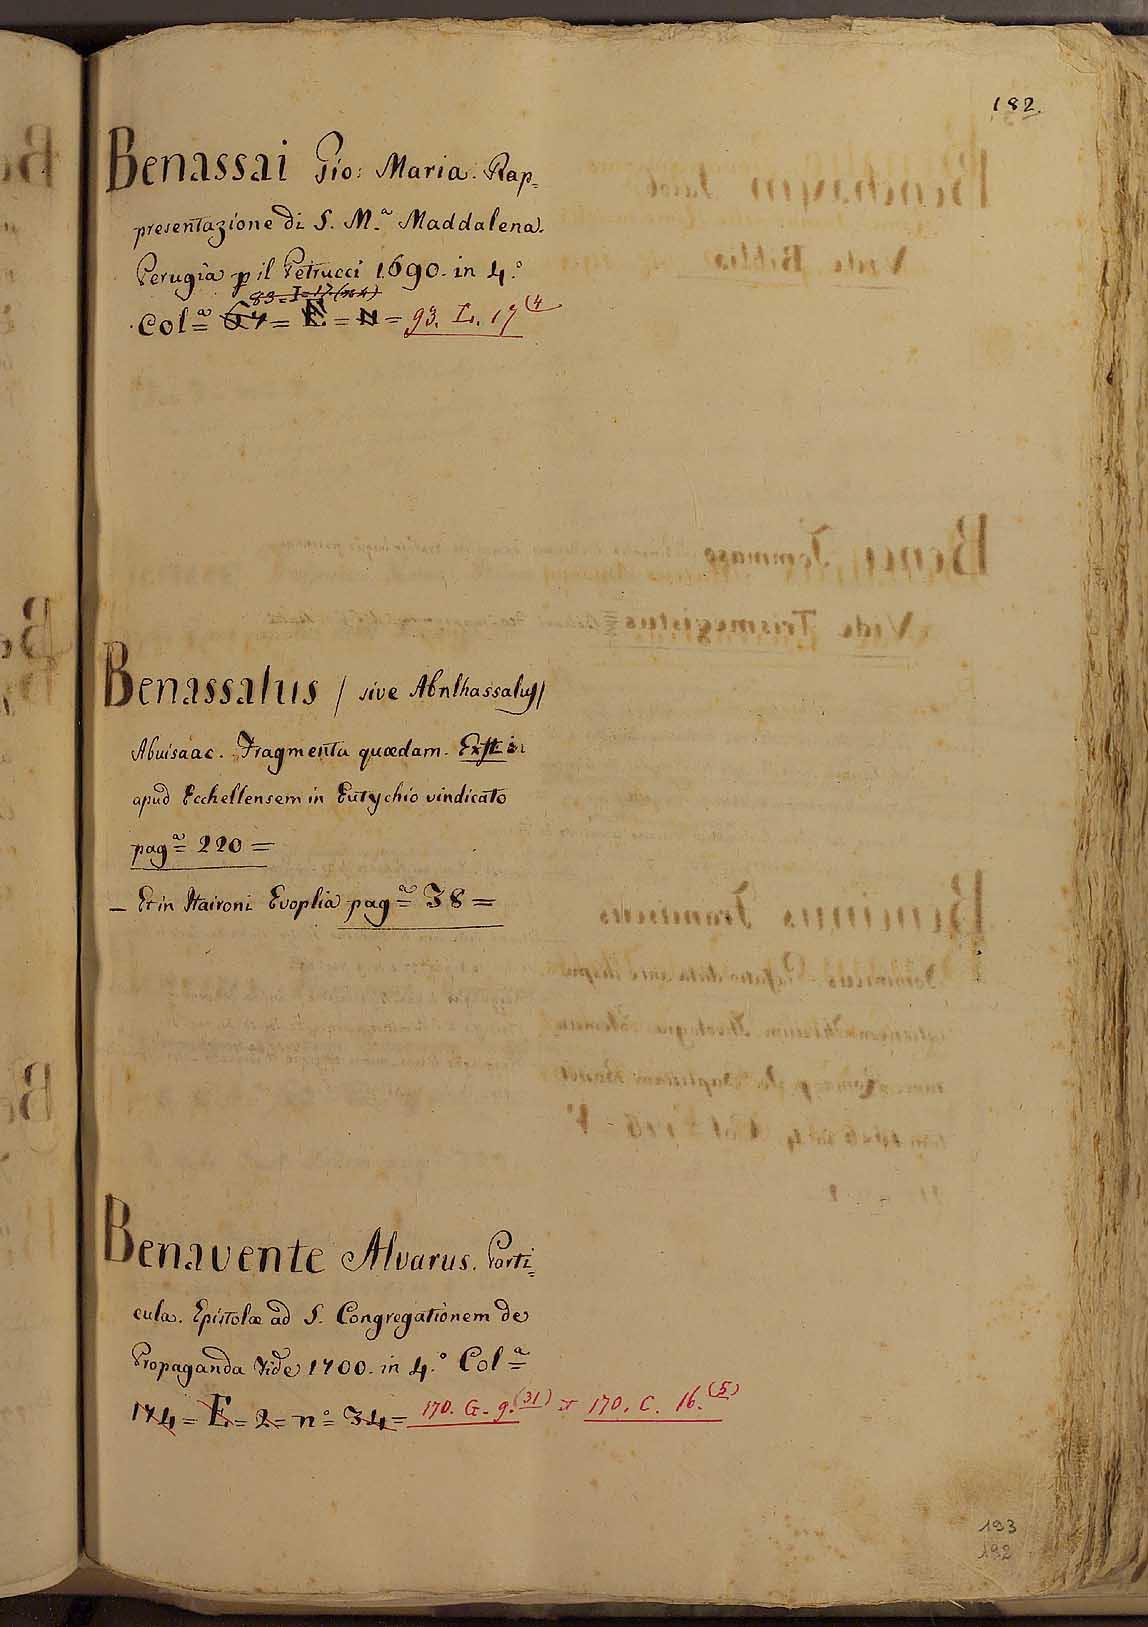 182.
Benassai Gio: Maria. Rap=
presentazione di S. M.ª Maddalena.
Perugia p il Petrucci 1690. in 4.°
83=I=17(n4)
Colª = E = 93. L. 17 (4
Benassalus / sive Abnlhassalus/
Abuisaac. Fragmenta quædam.
apud Ecchellensem in Eutychio vindicato
pagª 220 =
_ Et in Naironi Evoplia pagª 38 =
Benavente Alvarus. Parti=
cula. Epistolæ ad S. Congregationem de
Propaganda Vide 1700. in 4.° Colª
174 = E = 2 = n° 34 = 170. G. 9. (31) et 170. C. 16. (5)
193
192